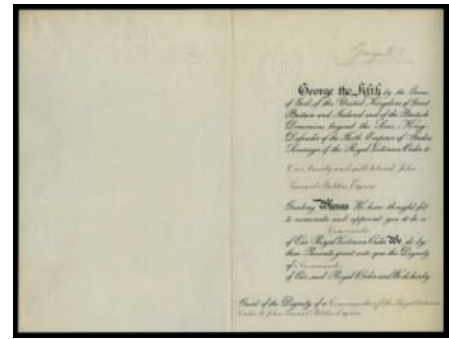 George R.I.
George the Fifth by the Grace
of God, of the United Kingdom of Great
Britain and Ireland and of the British
Dominions beyond the Seas, King,
Defender of the Faith, Emperor of India,
Sovereign of the Royal Victorian Order to
Our trusty and well beloved John
Esquire
Greeting Whereas We have thought fit
to nominate and appoint you to be a
Commander
of Our Royal Victorian Order We do by
these Presents grant unto you the Dignity
of a Commander
of Our said Royal Order and We do hereby
Grant of the Dignity of a Commander of the Royal Victorian
Order to John Esquire